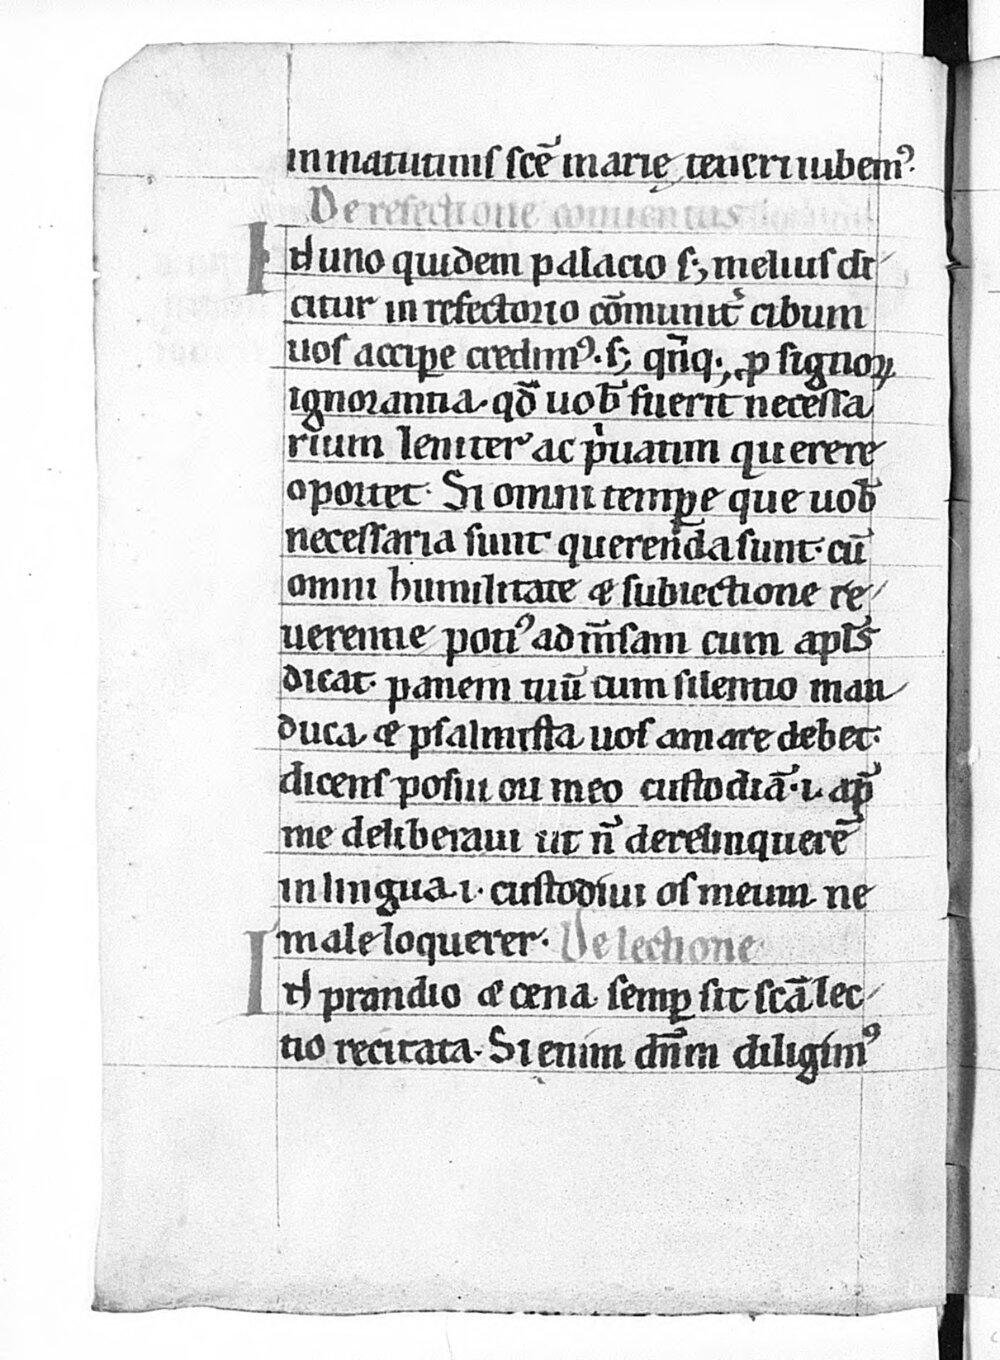 in matutinis sc̄e marie teneri iubemꝰ.
De refectione conuentus
In uno quidem palacio s; melius di
citur in refectorio cōmunit̾ cibum
uos accipe credimꝰ. s; qn̄q;, ꝑ signoꝝ
ignorantia. qd̄ uob̄ fuerit necessa
rium leniter ac p̍uatim querere
oportet. Si omni tempe que uob̄
necessaria sunt querenda sunt. cū
omni humilitate & subiectione re
uerentie potiꝰ ad m̄sam cum apl̄s
dicat. panem tuū cum silentio man
duca. & psalmista uos amare debet.
dicens posui ori meo custodiā. i. ap̄
me deliberaui ut n̄ derelinquerē
in lingua. i. custodiui os meum ne
male loquerer. De lectione
In prandio & cena semꝑ sit scā lec
tio recitata. Si enim dn̄m diligimꝰ